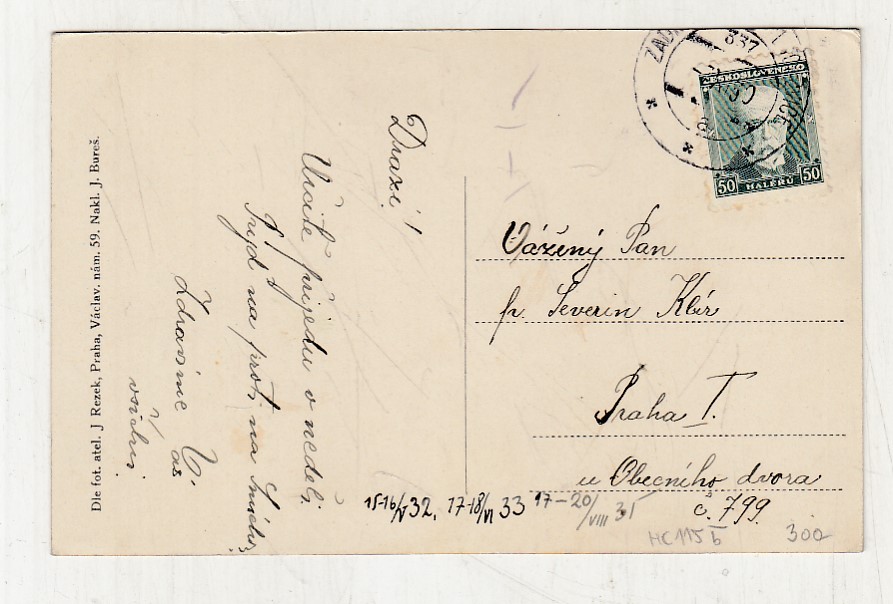 Dle fot. atel. J Rezek, Praha, Václav. nám. 59. Nakl. J. Bureš.
Drazí!
Určitě přijedu v neděli.
Přijď na proti na Smíchov,
Zdravíme Vás
všichni
337
ČESKOSLOVENSKO
50 HALÉŘŮ 50
Vážený Pan
p. Severin Klír
Praha I.
u Obecního dvora
č. 799.
15-16/V 32. 17-18/VI 33 17-20/VIII 31
HC 115 b 300